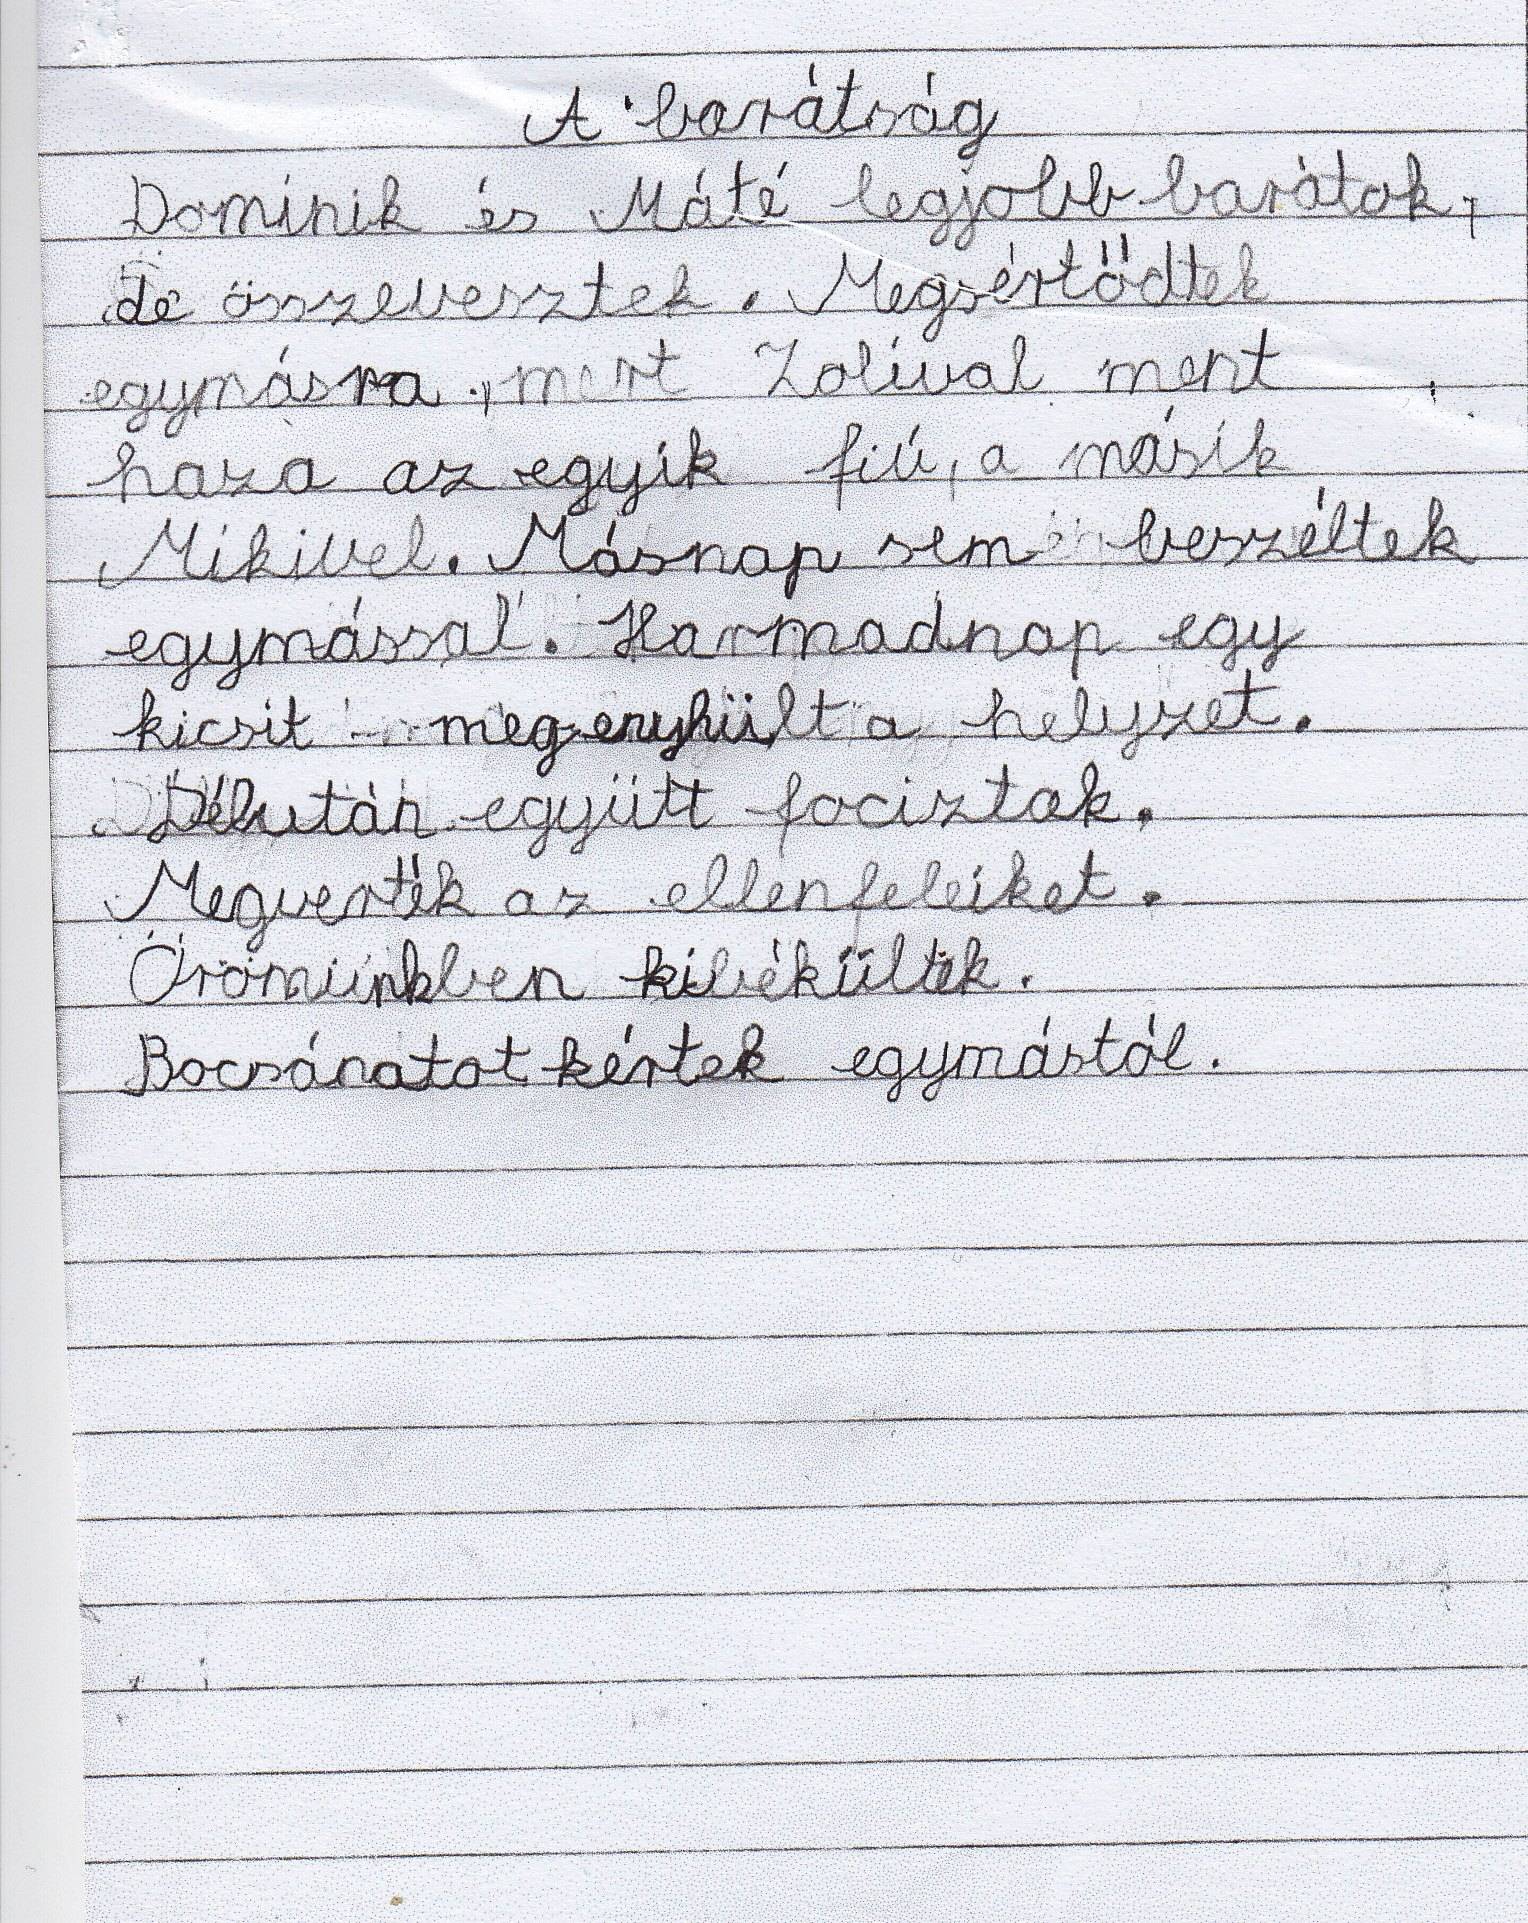 A barátság
Dominik és Máté legjobb barátok,
de összevesztek. Megsértődtek
egymásra, mert Zolival ment
haza az egyik fiú, a másik
Mikivel. Másnap sem beszéltek
egymással. Harmadnap egy
kicsit megenyhült a helyzet.
Délután együtt fociztak.
Megverték az ellenfeleiket.
Örömünkben kibékültek.
Bocsánatot kértek egymástól.